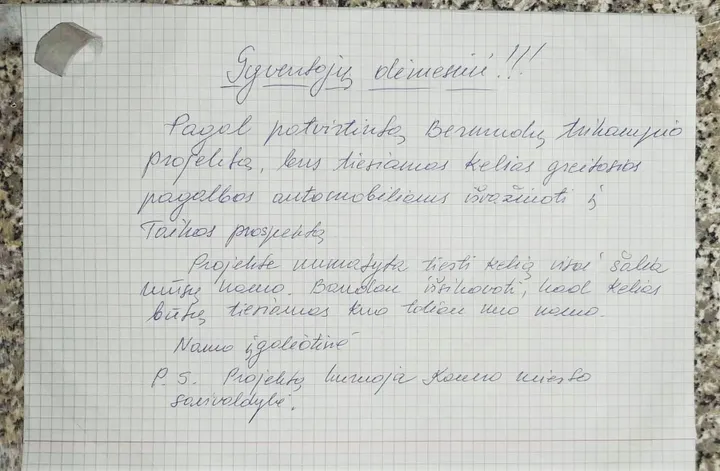 Gyventojų dėmesiui!!!
Pagal patvirtintą Bermudų trikampio
projektą, bus tiesiamas kelias greitosios
pagalbos automobiliams išvažiuoti į
Taikos prospektą
Projekte numatyta tiesti kelią visai šalia
mūsų namo. Bandau išsikovoti, kad kelias
būtų tiesiamas kuo toliau nuo namo.
Namo įgaliotinė
P.S. Projektą kuruoja Kauno miesto
savivaldybė.